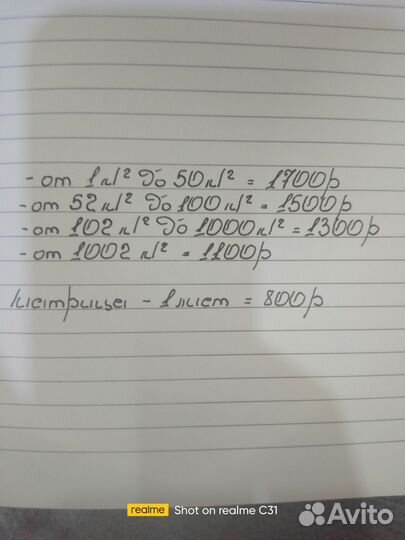 - от 1м² до 50м² = 1700р
- от 52 м² до 100м² = 1500р
- от 102 м² до 1000м² = 1300р
- от 1002 м² = 1100р
- 1 лист = 800р
realme Shot on realme C31
Avito